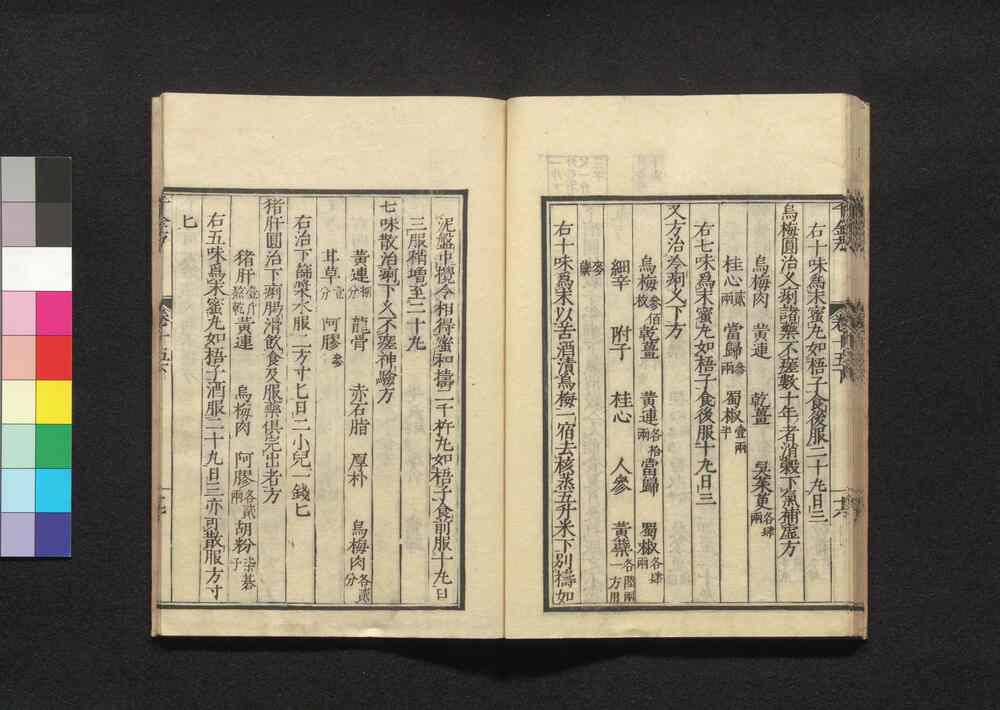 右十味爲末蜜丸如梧子食後服二十丸日三
烏梅圓治久痢諸藥不瘥數十年者消穀下氣補虛方
烏梅肉 黃連 乾薑 吳茱萸各肆兩
桂心貳兩 當歸叁兩 蜀椒壹兩半
右七味爲末蜜丸如梧子食後服十丸日三
又方治冷痢久下方
烏梅叁佰枚 乾薑 黃連各拾兩 當歸 蜀椒各肆兩
細辛 附子 桂心 人參 黃蘗各陸兩一方用麥蘗
右十味爲末以苦酒漬烏梅一宿去核蒸五升米下別擣如
泥盤中攪令相得蜜和擣二千杵丸如梧子食前服十丸日
三服稍增至二十丸
七味散治痢下久不瘥神驗方
黃連捌分 龍骨 赤石脂 厚朴 烏梅肉各貳分
甘草壹分 阿膠叁
右治下篩漿水服二方寸匕日二小兒一錢匕
猪肝圓治下痢腸滑飲食及服藥俱完出者方
猪肝壹斤熬乾 黃連 烏梅肉 阿膠各貳兩 胡粉柒棊子
右五味爲末蜜丸如梧子酒服二十丸日三亦可散服方寸
匕